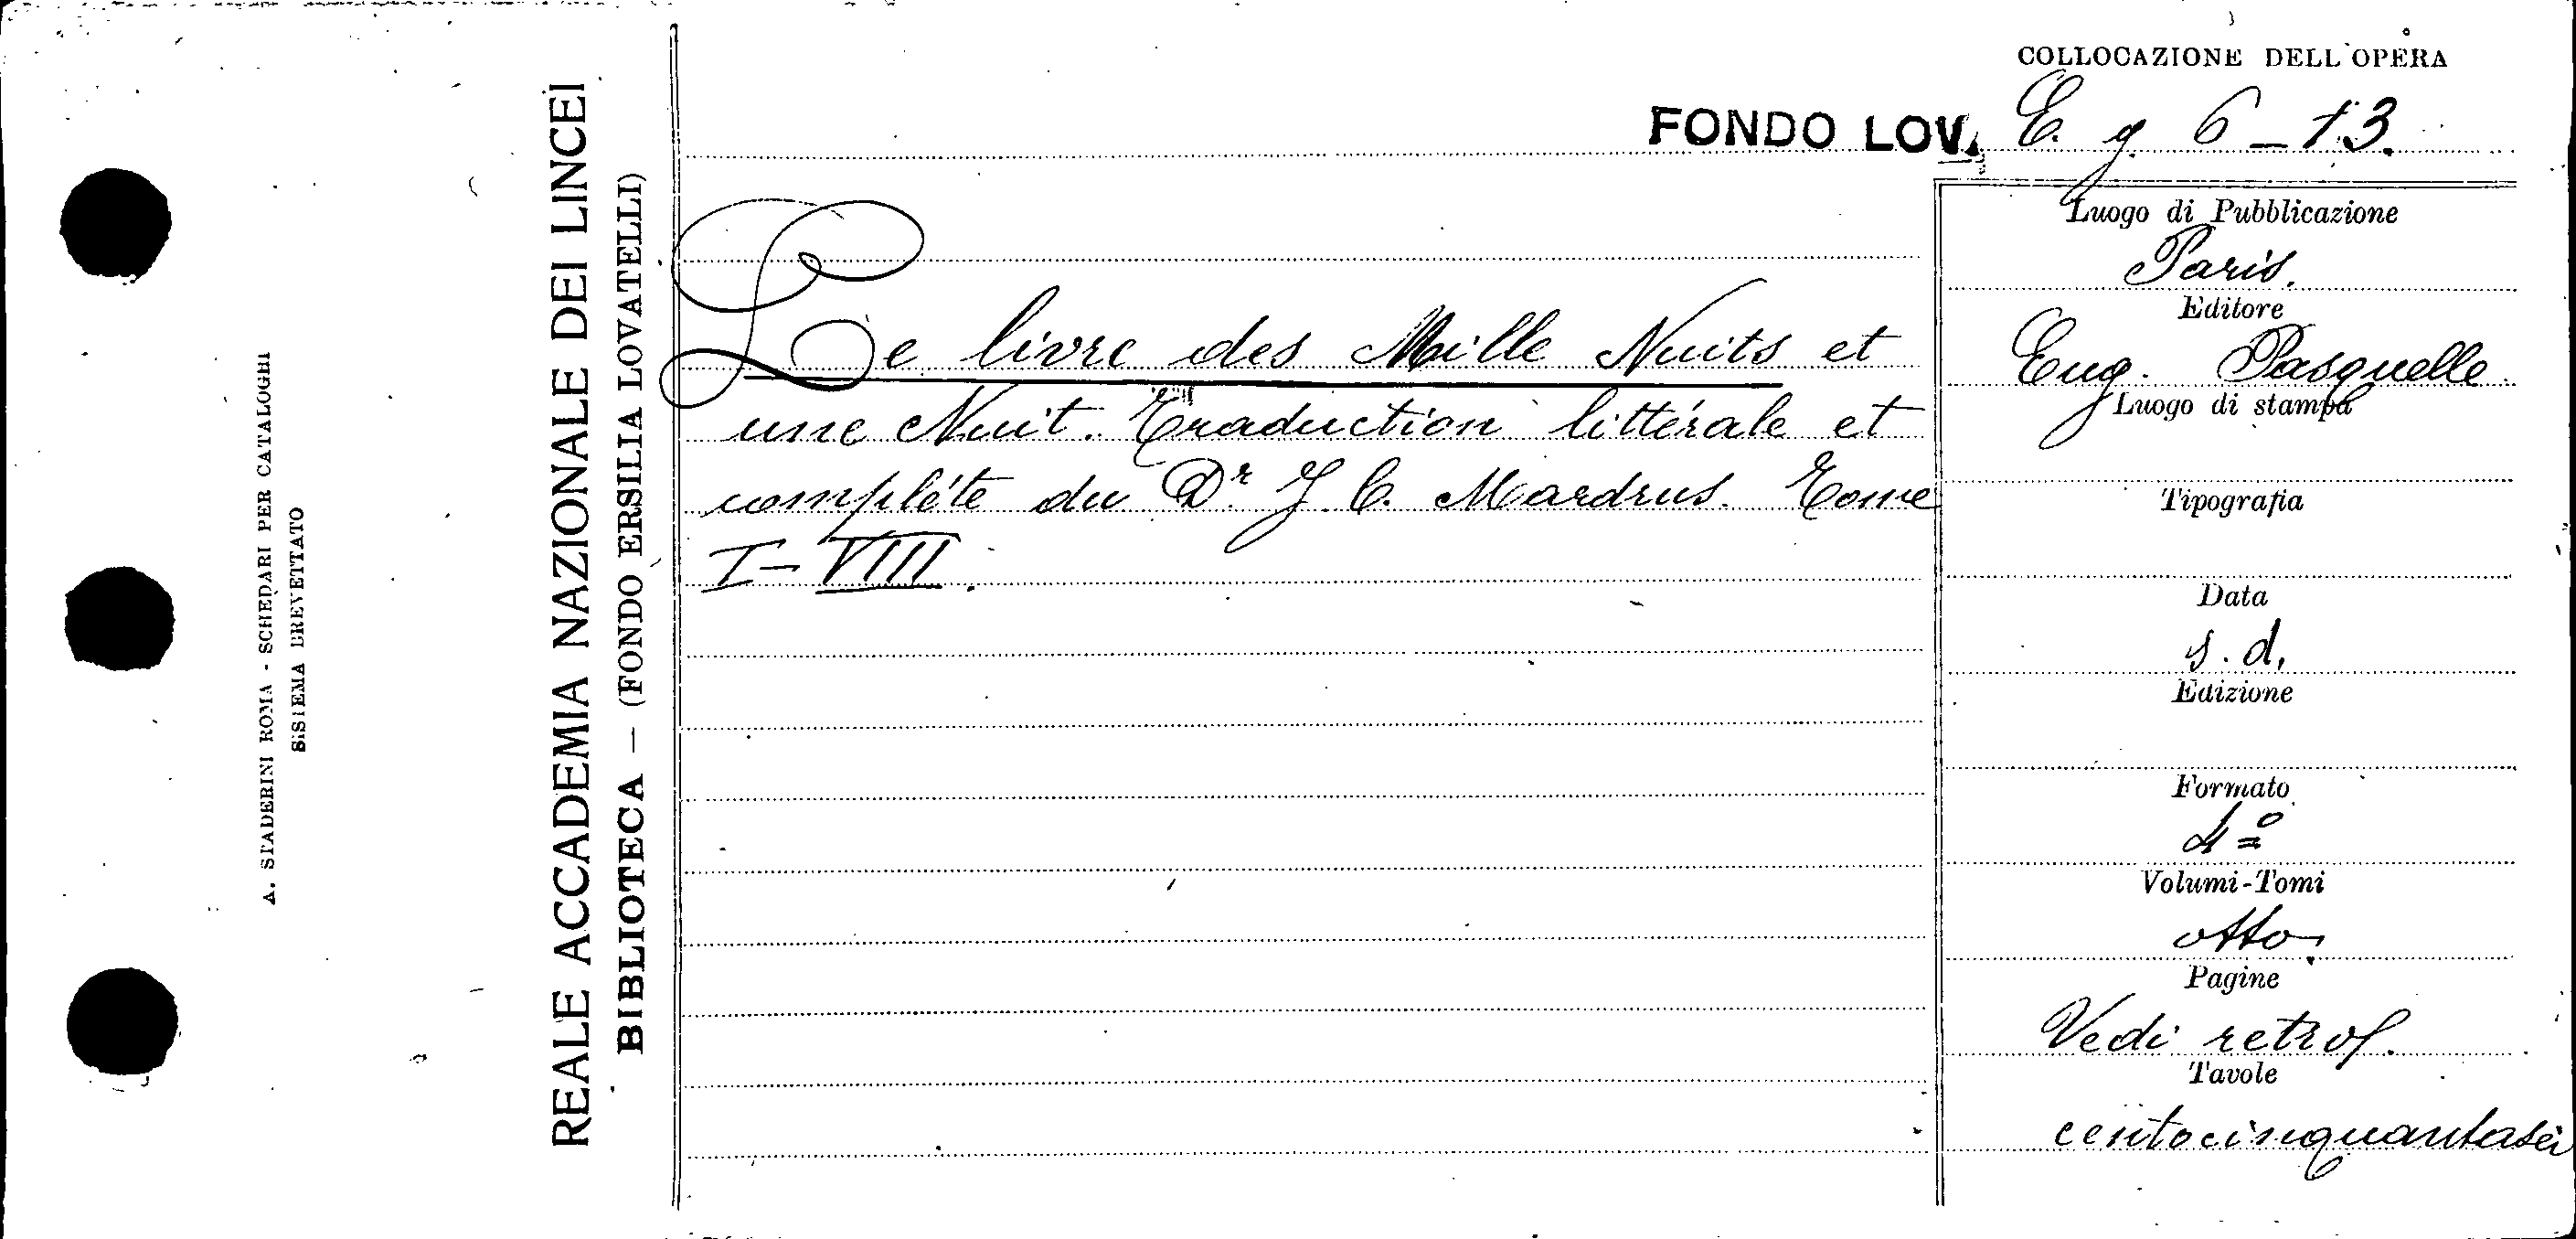 A. STADERINI ROMA - SCHEDARI PER CATALOGHI
SISTEMA BREVETTATO
REALE ACCADEMIA NAZIONALE DEI LINCEI
BIBLIOTECA — (FONDO ERSILIA LOVATELLI)
COLLOCAZIONE DELL'OPERA
FONDO LOV. E. g. 6 - 13.
Le livre des Mille Nuits et
une Nuit. Traduction littérale et
complète du Dr J. C. Mardrus. Tome
I - VIII.
Luogo di Pubblicazione
Paris.
Editore
Eug. Pasquelle
Luogo di stampa
Tipografia
Data
s. d.
Edizione
Formato
4º
Volumi-Tomi
otto
Pagine
Vedi retrof.
Tavole
centocinquantasei